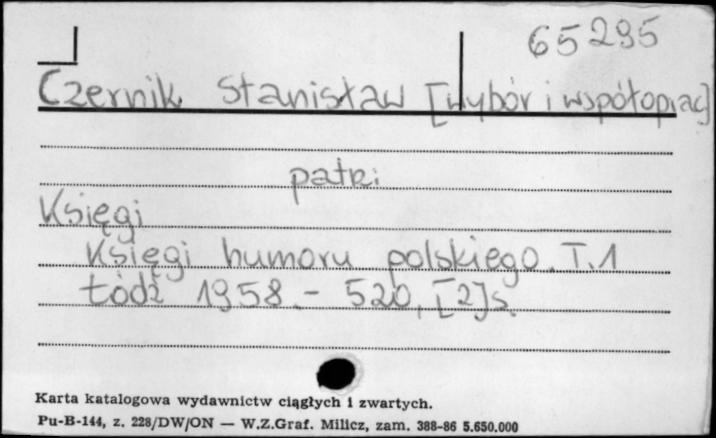 65295
Czernik Stanisław [Wybór i współoprac]
patrz:
Księgi
Księgi humoru polskiego. T.1
Łódź 1958 - 520, [2]s.
Karta katalogowa wydawnictw ciągłych i zwartych.
Pu-B-144, z. 228/DW/ON — W.Z.Graf. Milicz, zam. 388-86 5.650.000